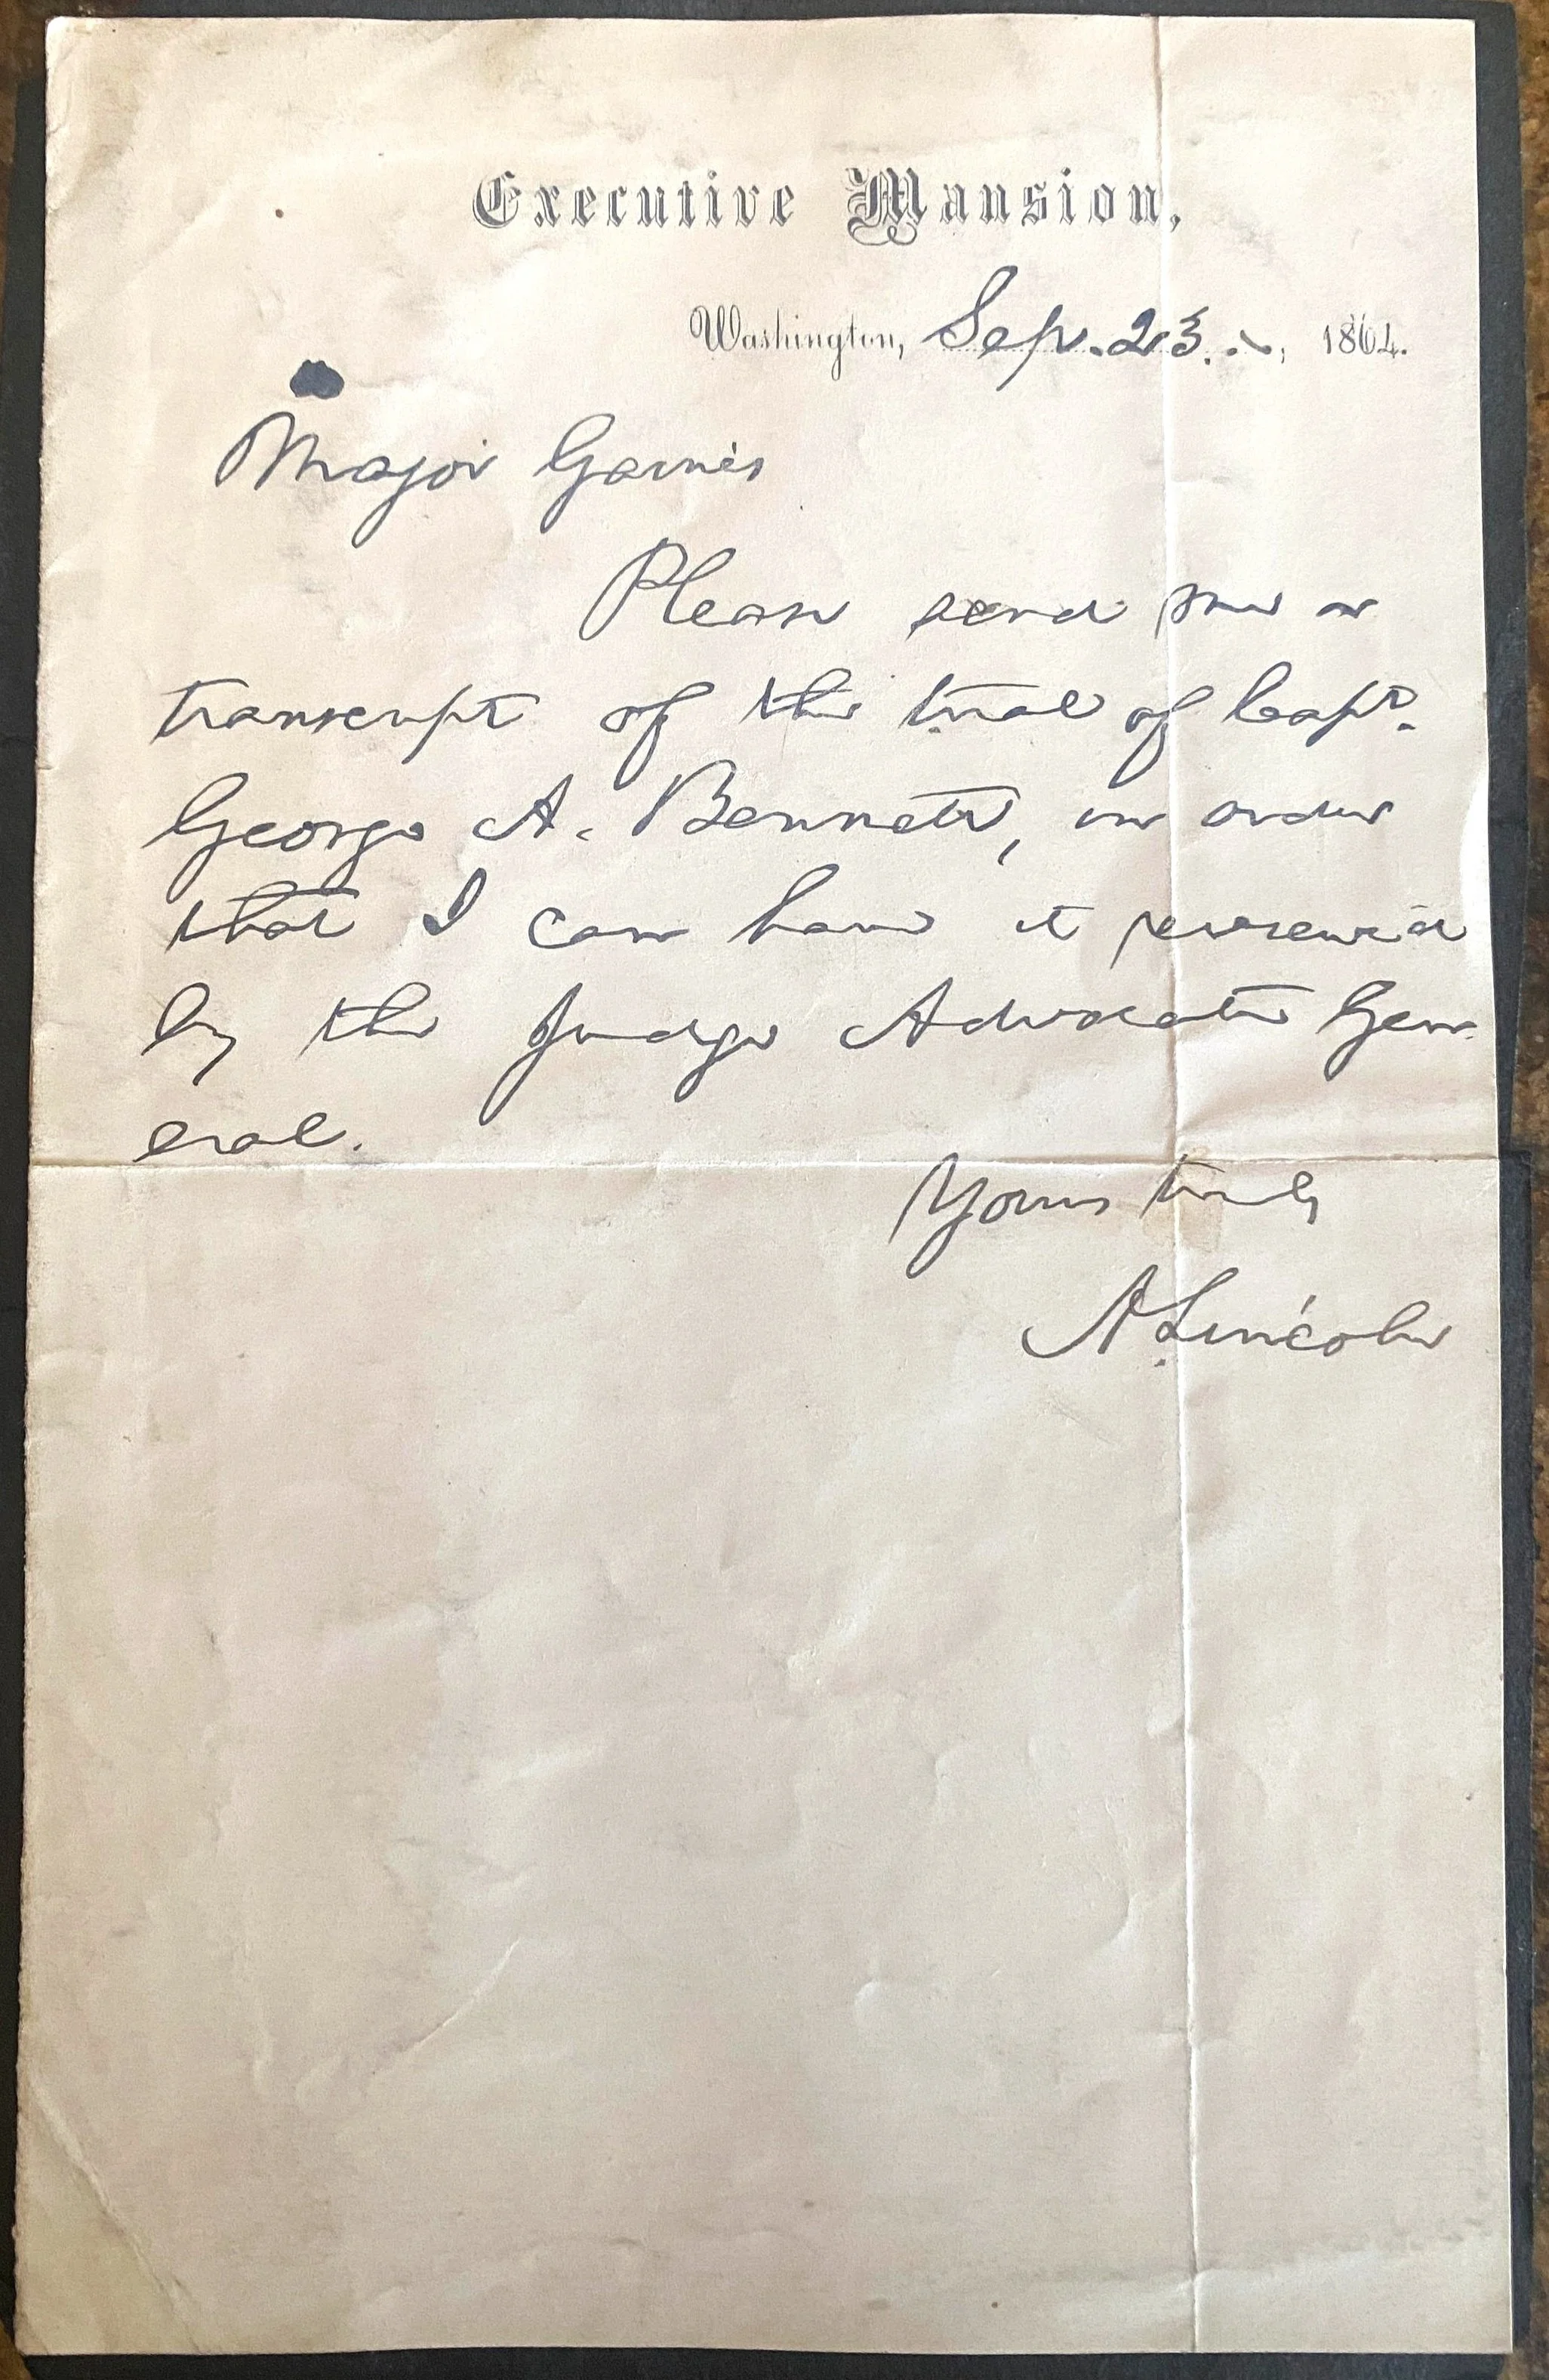 Executive Mansion,
Washington, Sep. 23., 1864.
Major Garnis
Please send me a
transcript of the trial of Capt.
George A. Bennett, in order
that I can have it reviewed
by the Judge Advocate Gen
eral.
Yours truly
A. Lincoln